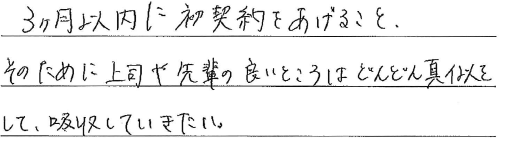 3ヶ月以内に初契約をあげること.
そのために上司や先輩の良いところはどんどん真似を
して、吸収していきたい。